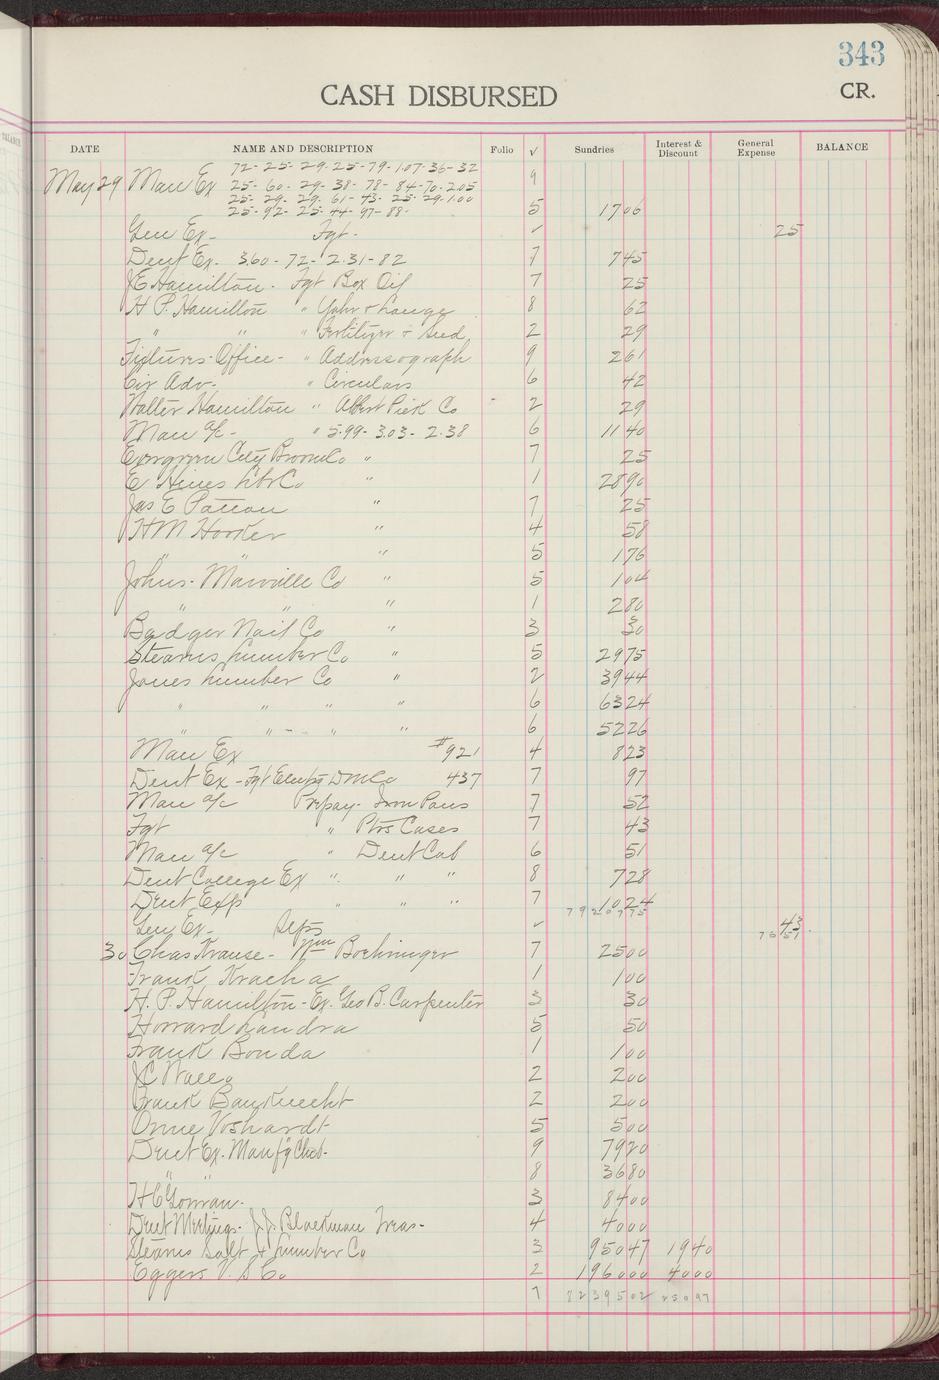 343
CASH DISBURSED
CR.
DATE NAME AND DESCRIPTION Folio √ Sundries Interest & Discount General Expense BALANCE
72- 25- 29- 25- 79- 107- 36- 32
May 29 Man Ex 25- 60- 29- 38- 78- 84- 70- 205 9
25- 29- 29- 61- 43- 25- 29- 100
25- 92- 25- 44- 97- 88- 5 1706
Gen Ex- Fgt- ✓ 25
Dent Ex. 360- 72- 2.31- 82 7 745
JE Hamilton- Fgt Box Oil 7 25
H P. Hamilton " Yahr & Lange 8 62
" " " Fertilizer & Seed 2 29
Fixtures- Office- " Addressograph 9 261
Cir Adv- " Circulars 6 42
Walter Hamilton " Albert Pick Co 2 29
Man a/c- " 5.99- 3.03- 2.38 6 1140
Evergreen City Broom Co " 7 25
E Hines Lbr Co " 1 2890
Jas E Patton " 7 25
H M Hooker " 4 58
" " " 5 176
Johns- Manville Co " 5 104
" " " 1 280
Badger Nail Co " 3 30
Stearns Lumber Co " 5 2975
Jones Lumber Co " 2 3944
" " " " 6 6324
" " " " 6 5226
Man Ex #921 4 823
Dent Ex- Fgt 437 7 97
Man a/c Prepay- Iron Pans 7 52
Fgt " Ptrs Cases 7 43
Man a/c " Dent Cab 6 51
Dent College Ex " " " 8 728
Dent Exp " " " 7 1024
7920775
Gen Ex- ✓ 43
7651
30 Chas Krause- Wm Boehringer 7 2500
Frank Kracha 1 100
H. P. Hamilton- Ex. Geo B. Carpenter 3 30
Howard Landra 5 50
Frank Bonda 1 100
JC 2 200
Frank Bauknecht 2 200
Orme Voshardt 5 500
Dent Ex. Manfg Chgs- 9 7920
" " 8 3680
H C Gorman- 3 8400
Dent Meetings- J.J. Blackman Treas- 4 4000
Stearns Salt & Lumber Co 3 95047 1940
Eggers V. & Co 2 196000 4000
7 8239502 25097